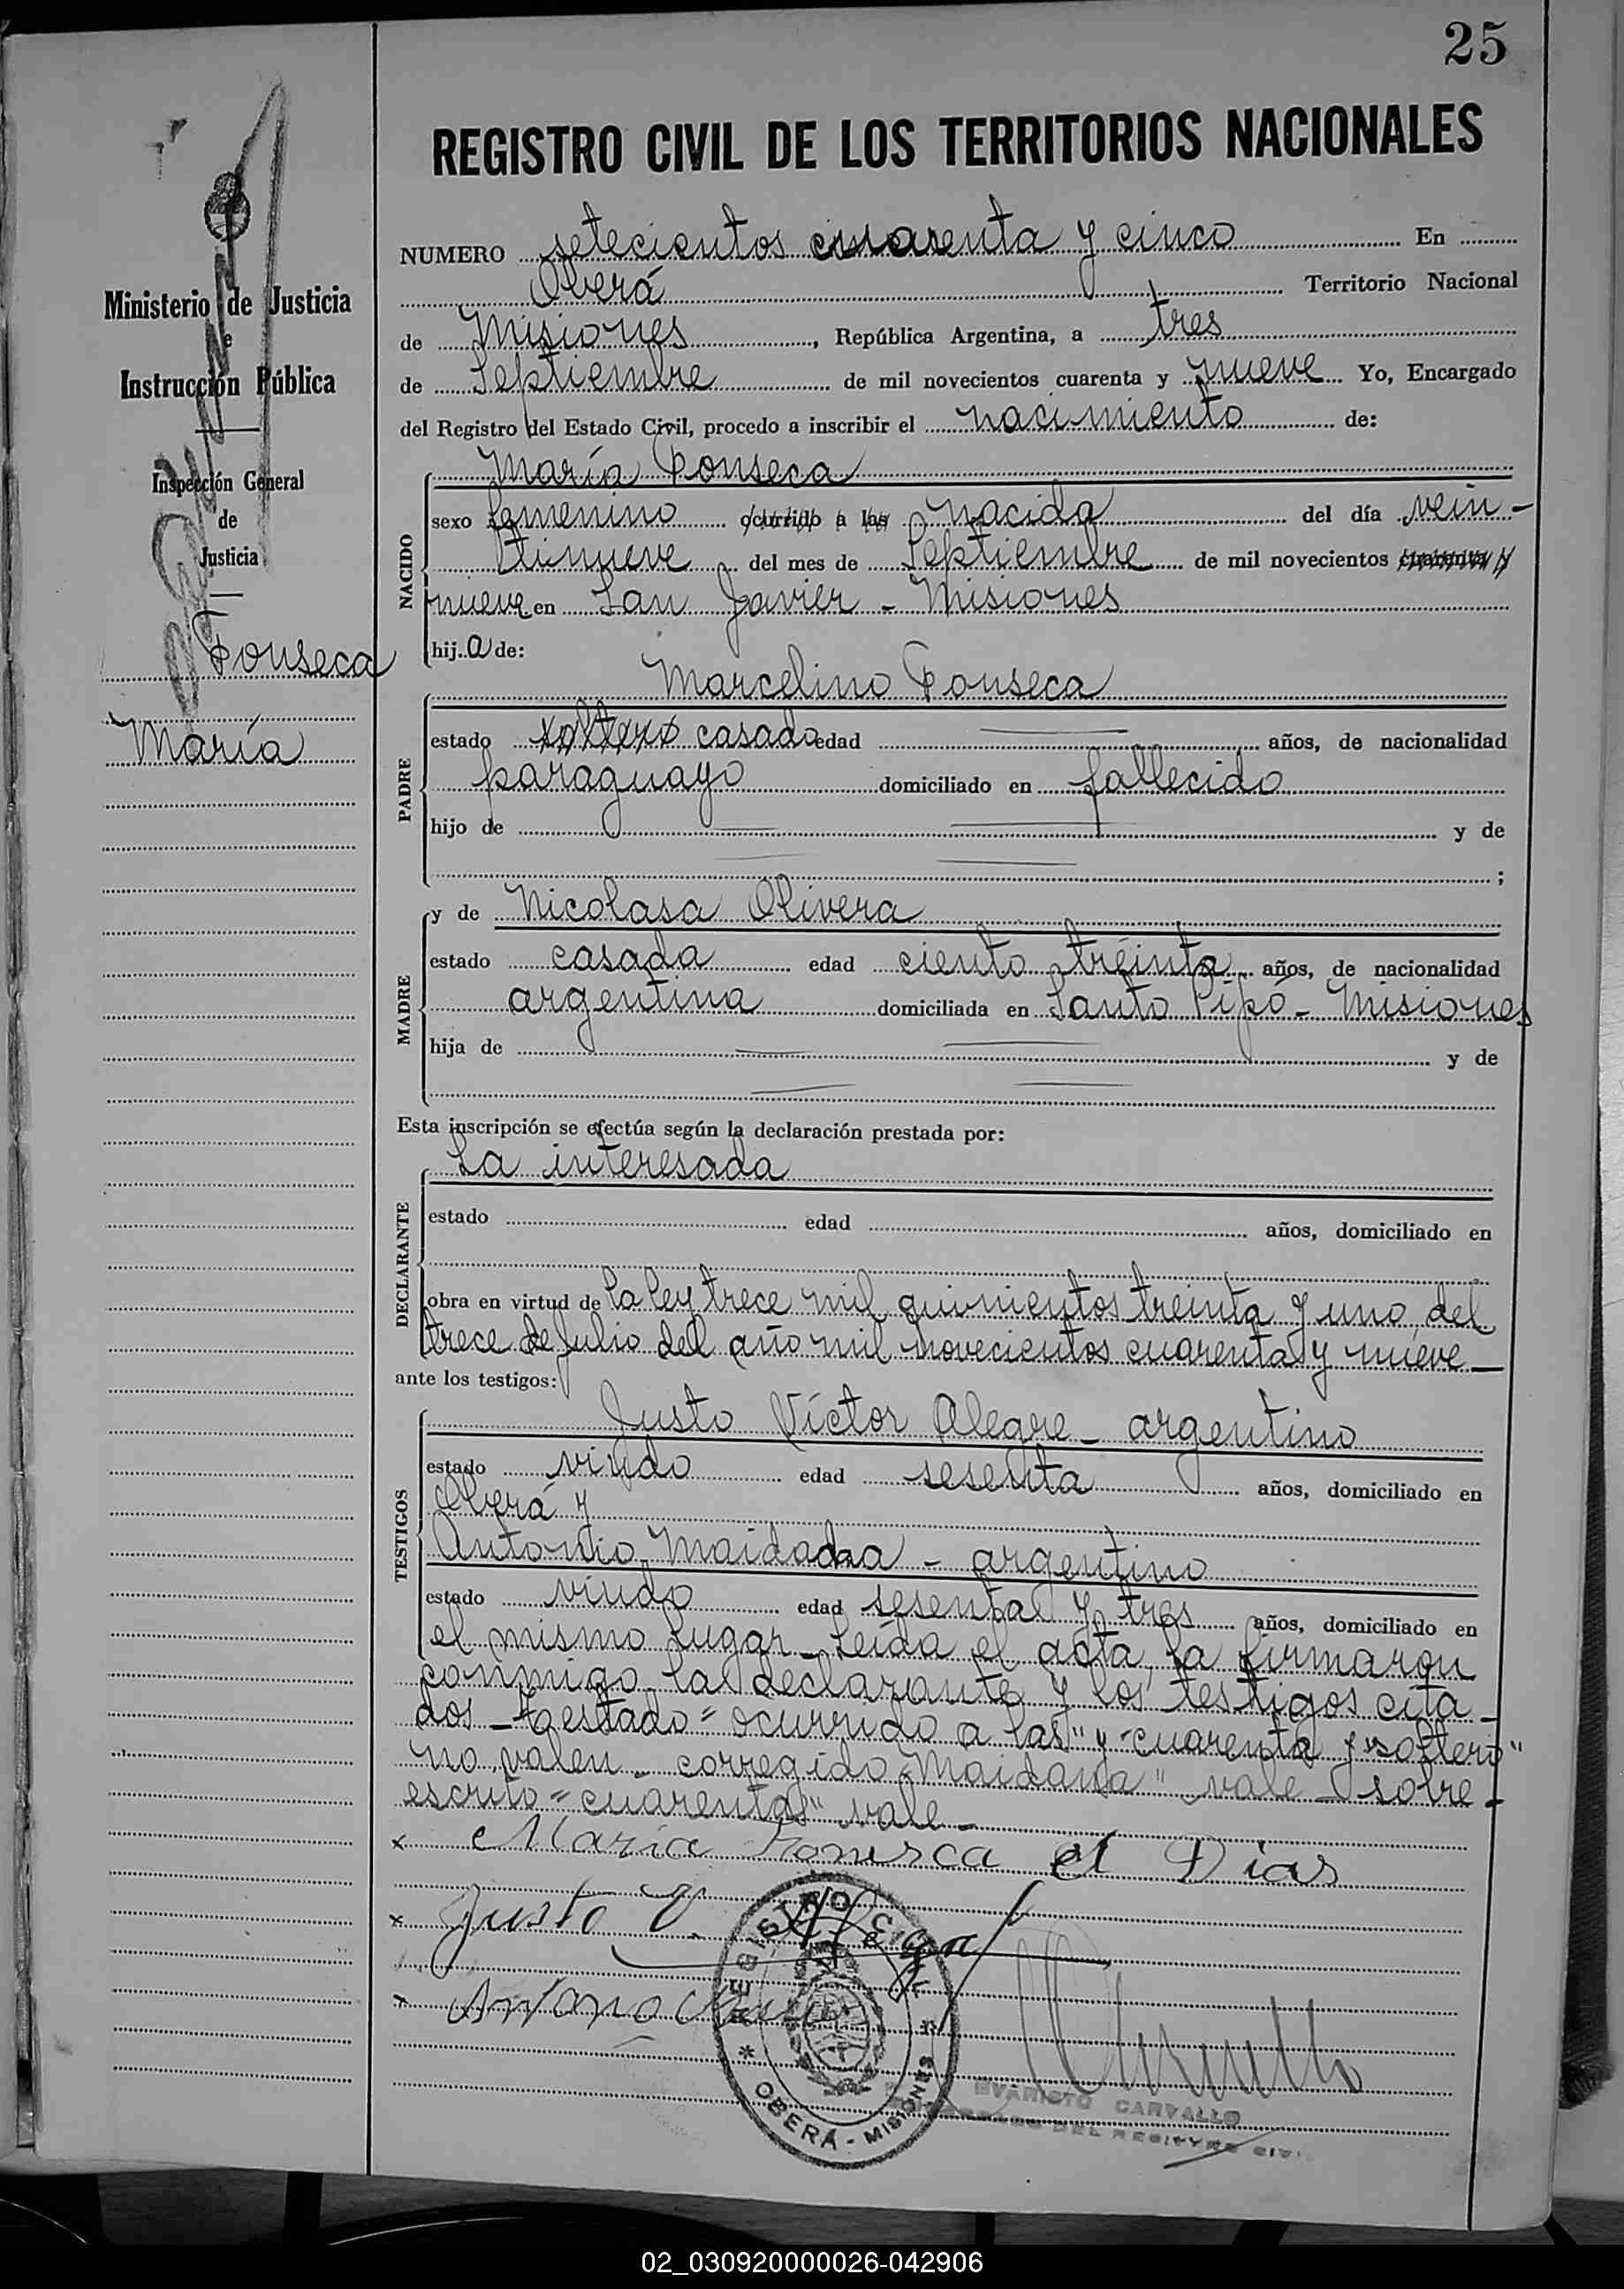 25
REGISTRO CIVIL DE LOS TERRITORIOS NACIONALES
NUMERO setecientos cuarenta y cinco En
Oberá Territorio Nacional
de Misiones, República Argentina, a tres
de Septiembre de mil novecientos cuarenta y nueve Yo, Encargado
del Registro del Estado Civil, procedo a inscribir el nacimiento de:
Ministerio de Justicia
e
Instrucción Pública
Inspección General
de
Justicia
Fonseca
María
NACIDO
María Fonseca
sexo femenino ocurrido a las nacida del día vein-
tinueve del mes de Septiembre de mil novecientos cuarenta y
nueve en San Javier - Misiones
hija de:
PADRE
Marcelino Fonseca
estado soltero casado edad años, de nacionalidad
paraguayo domiciliado en fallecido
hijo de y de
;
MADRE
y de Nicolasa Olivera
estado casada edad ciento treinta años, de nacionalidad
argentina domiciliada en Santo Pipó - Misiones
hija de y de
Esta inscripción se efectúa según la declaración prestada por:
DECLARANTE
La interesada
estado edad años, domiciliado en
obra en virtud de la ley trece mil quinientos treinta y uno, del
trece de Julio del año mil novecientos cuarenta y nueve -
ante los testigos:
TESTIGOS
Justo Víctor Alegre - argentino
estado viudo edad sesenta años, domiciliado en
Oberá y
Antonio Maidana - argentino
estado viudo edad sesenta y tres años, domiciliado en
el mismo lugar - Leída el acta, la firmaron
conmigo la declarante y los testigos cita-
dos - Testado "ocurrido a las" y "cuarenta y "soltero"
no valen - corregido "Maidana" vale - sobre-
escrito "cuarenta" vale -
x María Fonseca Dias
x Justo V. Alegre
x Antonio
REGISTRO CIVIL
* OBERÁ - MISIONES *
EVARISTO CARVALLO
DEL REGISTRO CIVIL
02_030920000026-042906